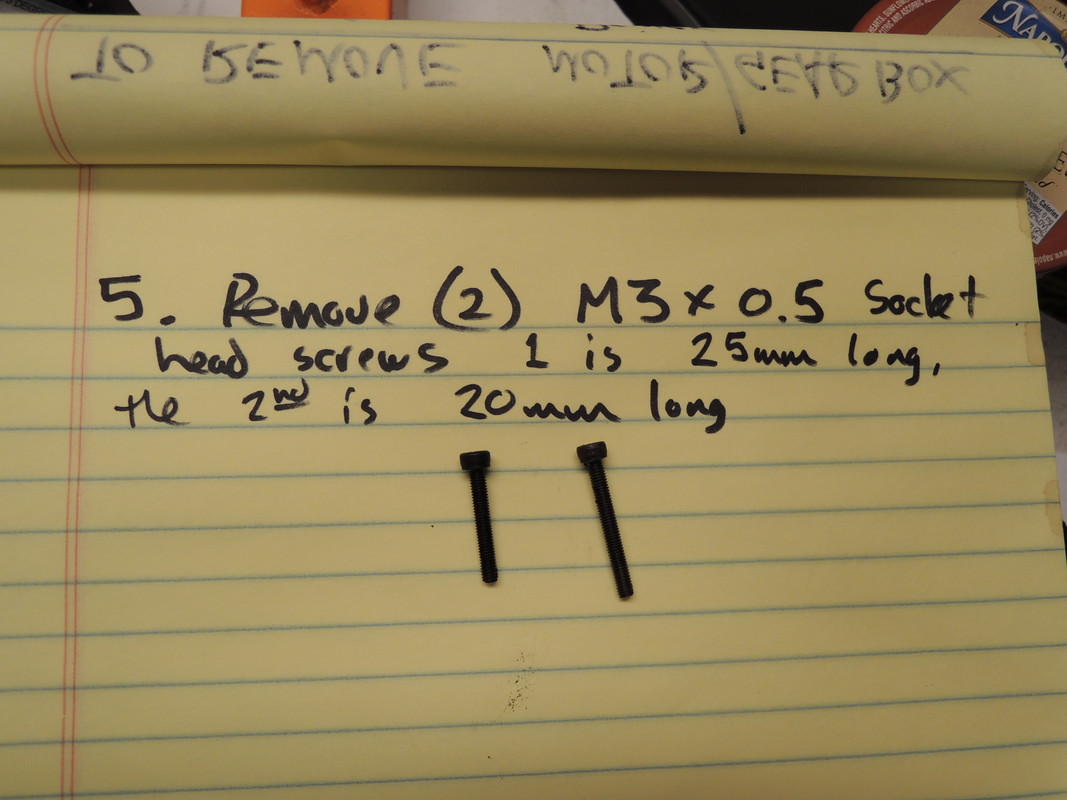 TO REMOVE MOTOR/GEAR BOX
5. Remove (2) M3 x 0.5 Socket
head screws 1 is 25mm long,
the 2nd is 20mm long